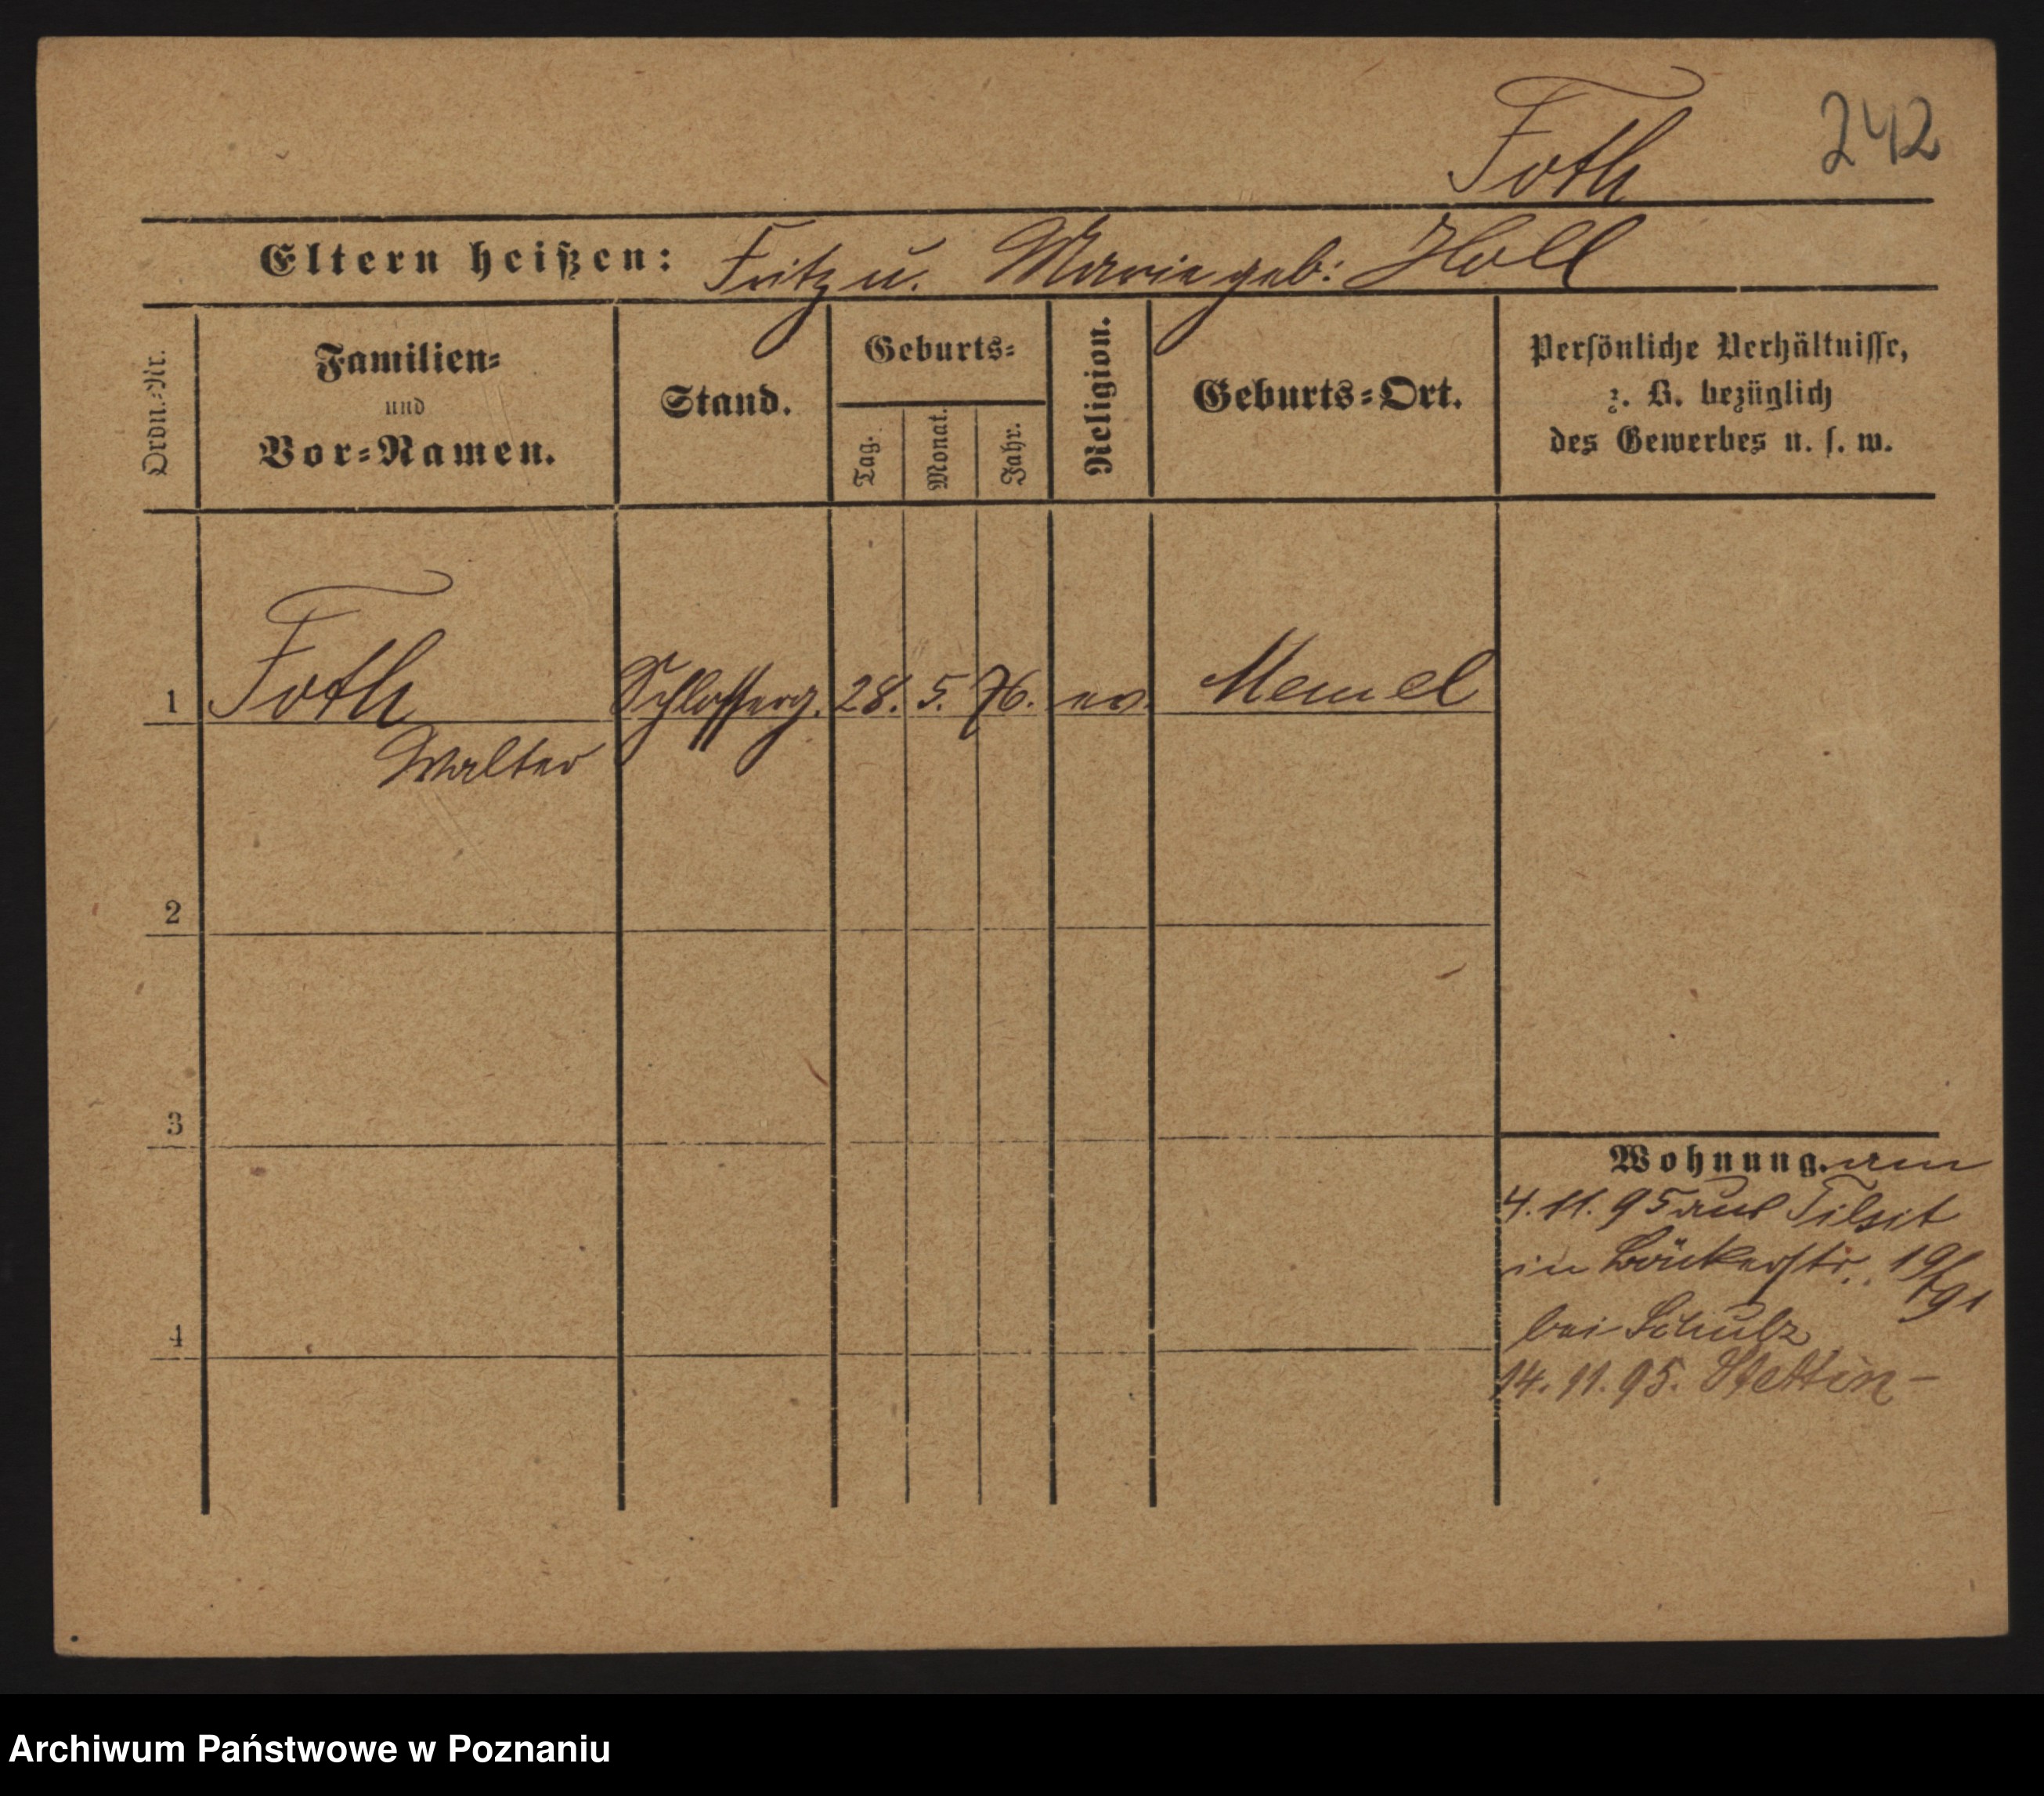 Foth
242
Eltern heißen: Fritz u. Marie geb: Holl
Ordn.-Nr.
Familien-
und
Vor-Namen.
Stand.
Geburts-
Tag.
Monat.
Jahr.
Religion.
Geburts-Ort.
Persönliche Verhältnisse,
z. B. bezüglich
des Gewerbes u. s. w.
1 Foth Schlosserg. 28. 5. 76. ev. Memel
Walter
2
3
4
Wohnung. am
4. 11. 95 aus Tilsit
in Bäckerstr. 19/
bei Schulz
14. 11. 95. Stettin-
Archiwum Państwowe w Poznaniu